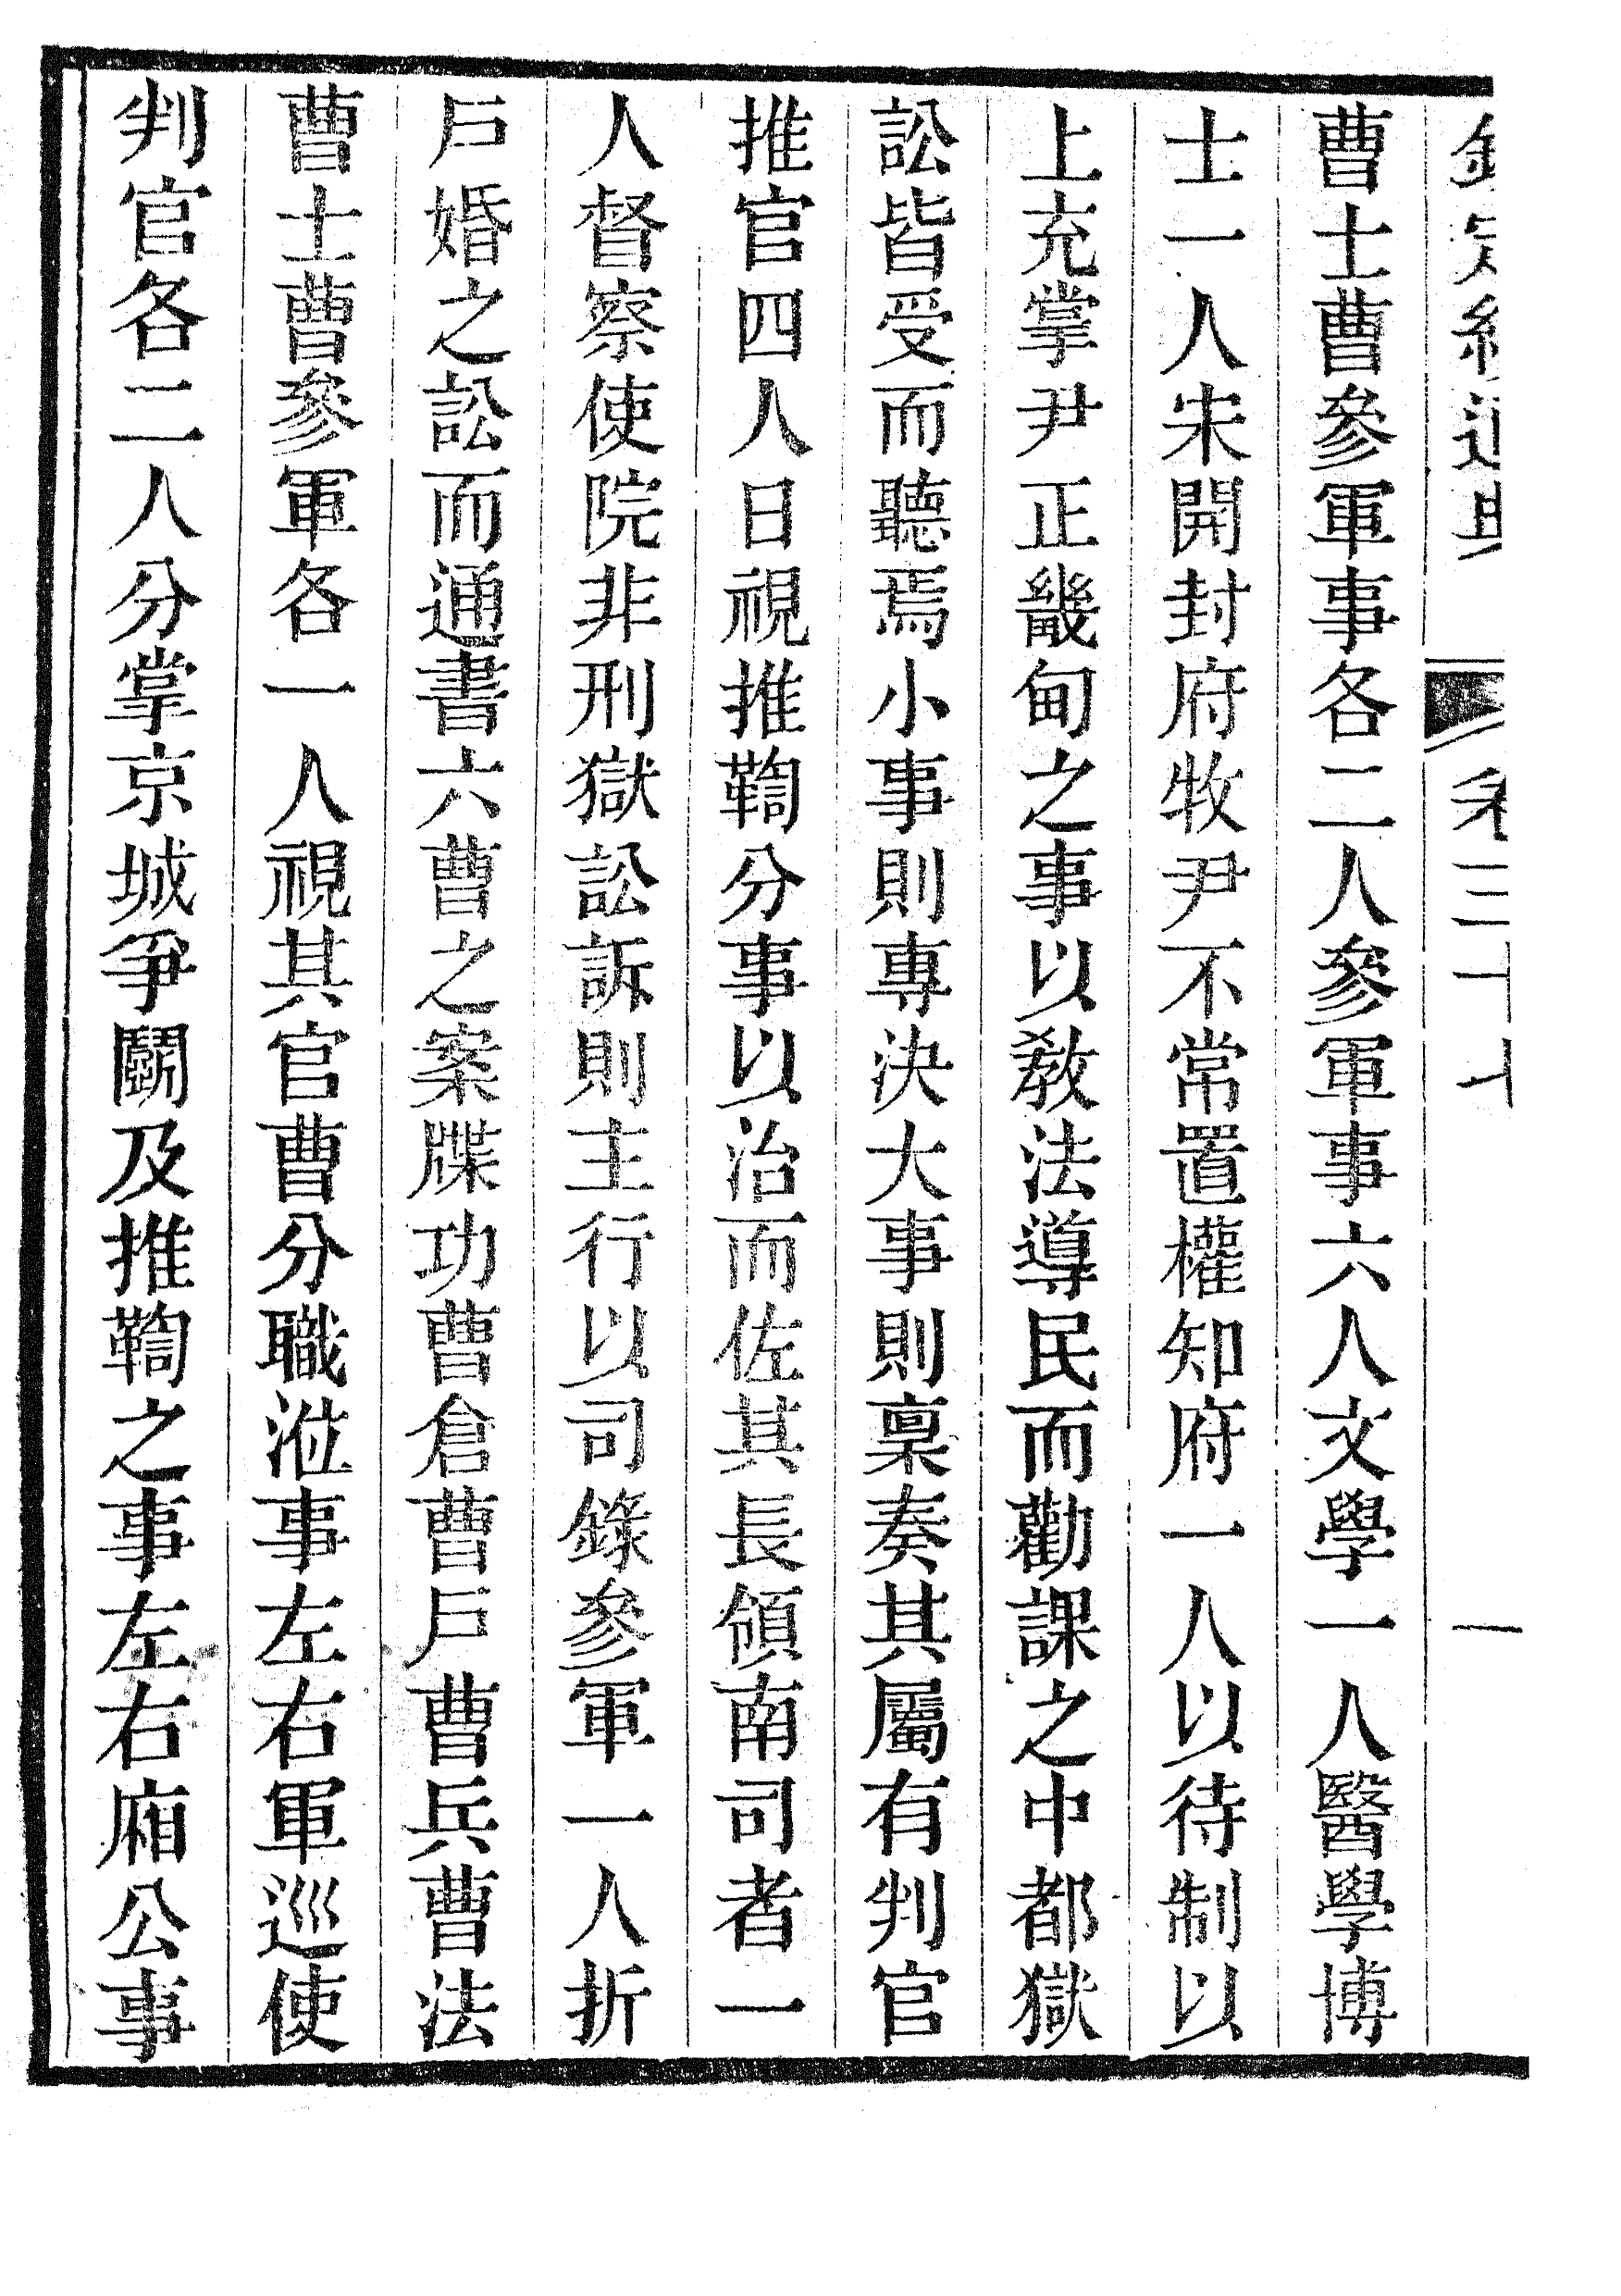 曹士曹參軍事各二人參軍事六人文學一人醫學博
士一人宋開封府牧尹不常置權知府一人以待制以
上充掌尹正畿甸之事以敎法導民而勸課之中都獄
訟皆受而聽焉小事則專決大事則稟奏其屬有判官
推官四人日視推鞫分事以治而佐其長領南司者一
人督察使院非刑獄訟訴則主行以司錄參軍一人折
戶婚之訟而通書六曹之案牒功曹倉曹戶曹兵曹法
曹士曹參軍各一人視其官曹分職涖事左右軍巡使
判官各二人分掌京城爭鬭及推鞫之事左右廂公事